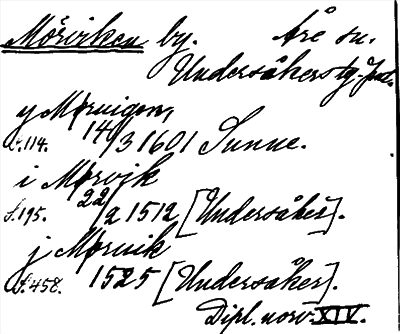 Mörviken by. Åre sn.
Undersåkers tg. Jtl.
y Møruigen,
s. 114. 14/3 1601 Sunne.
i Mørvjk
s. 195. 22/2 1512 [Undersåker].
j Møruik
s. 458. 1525 [Undersåker].
Dipl. norv. XIV.